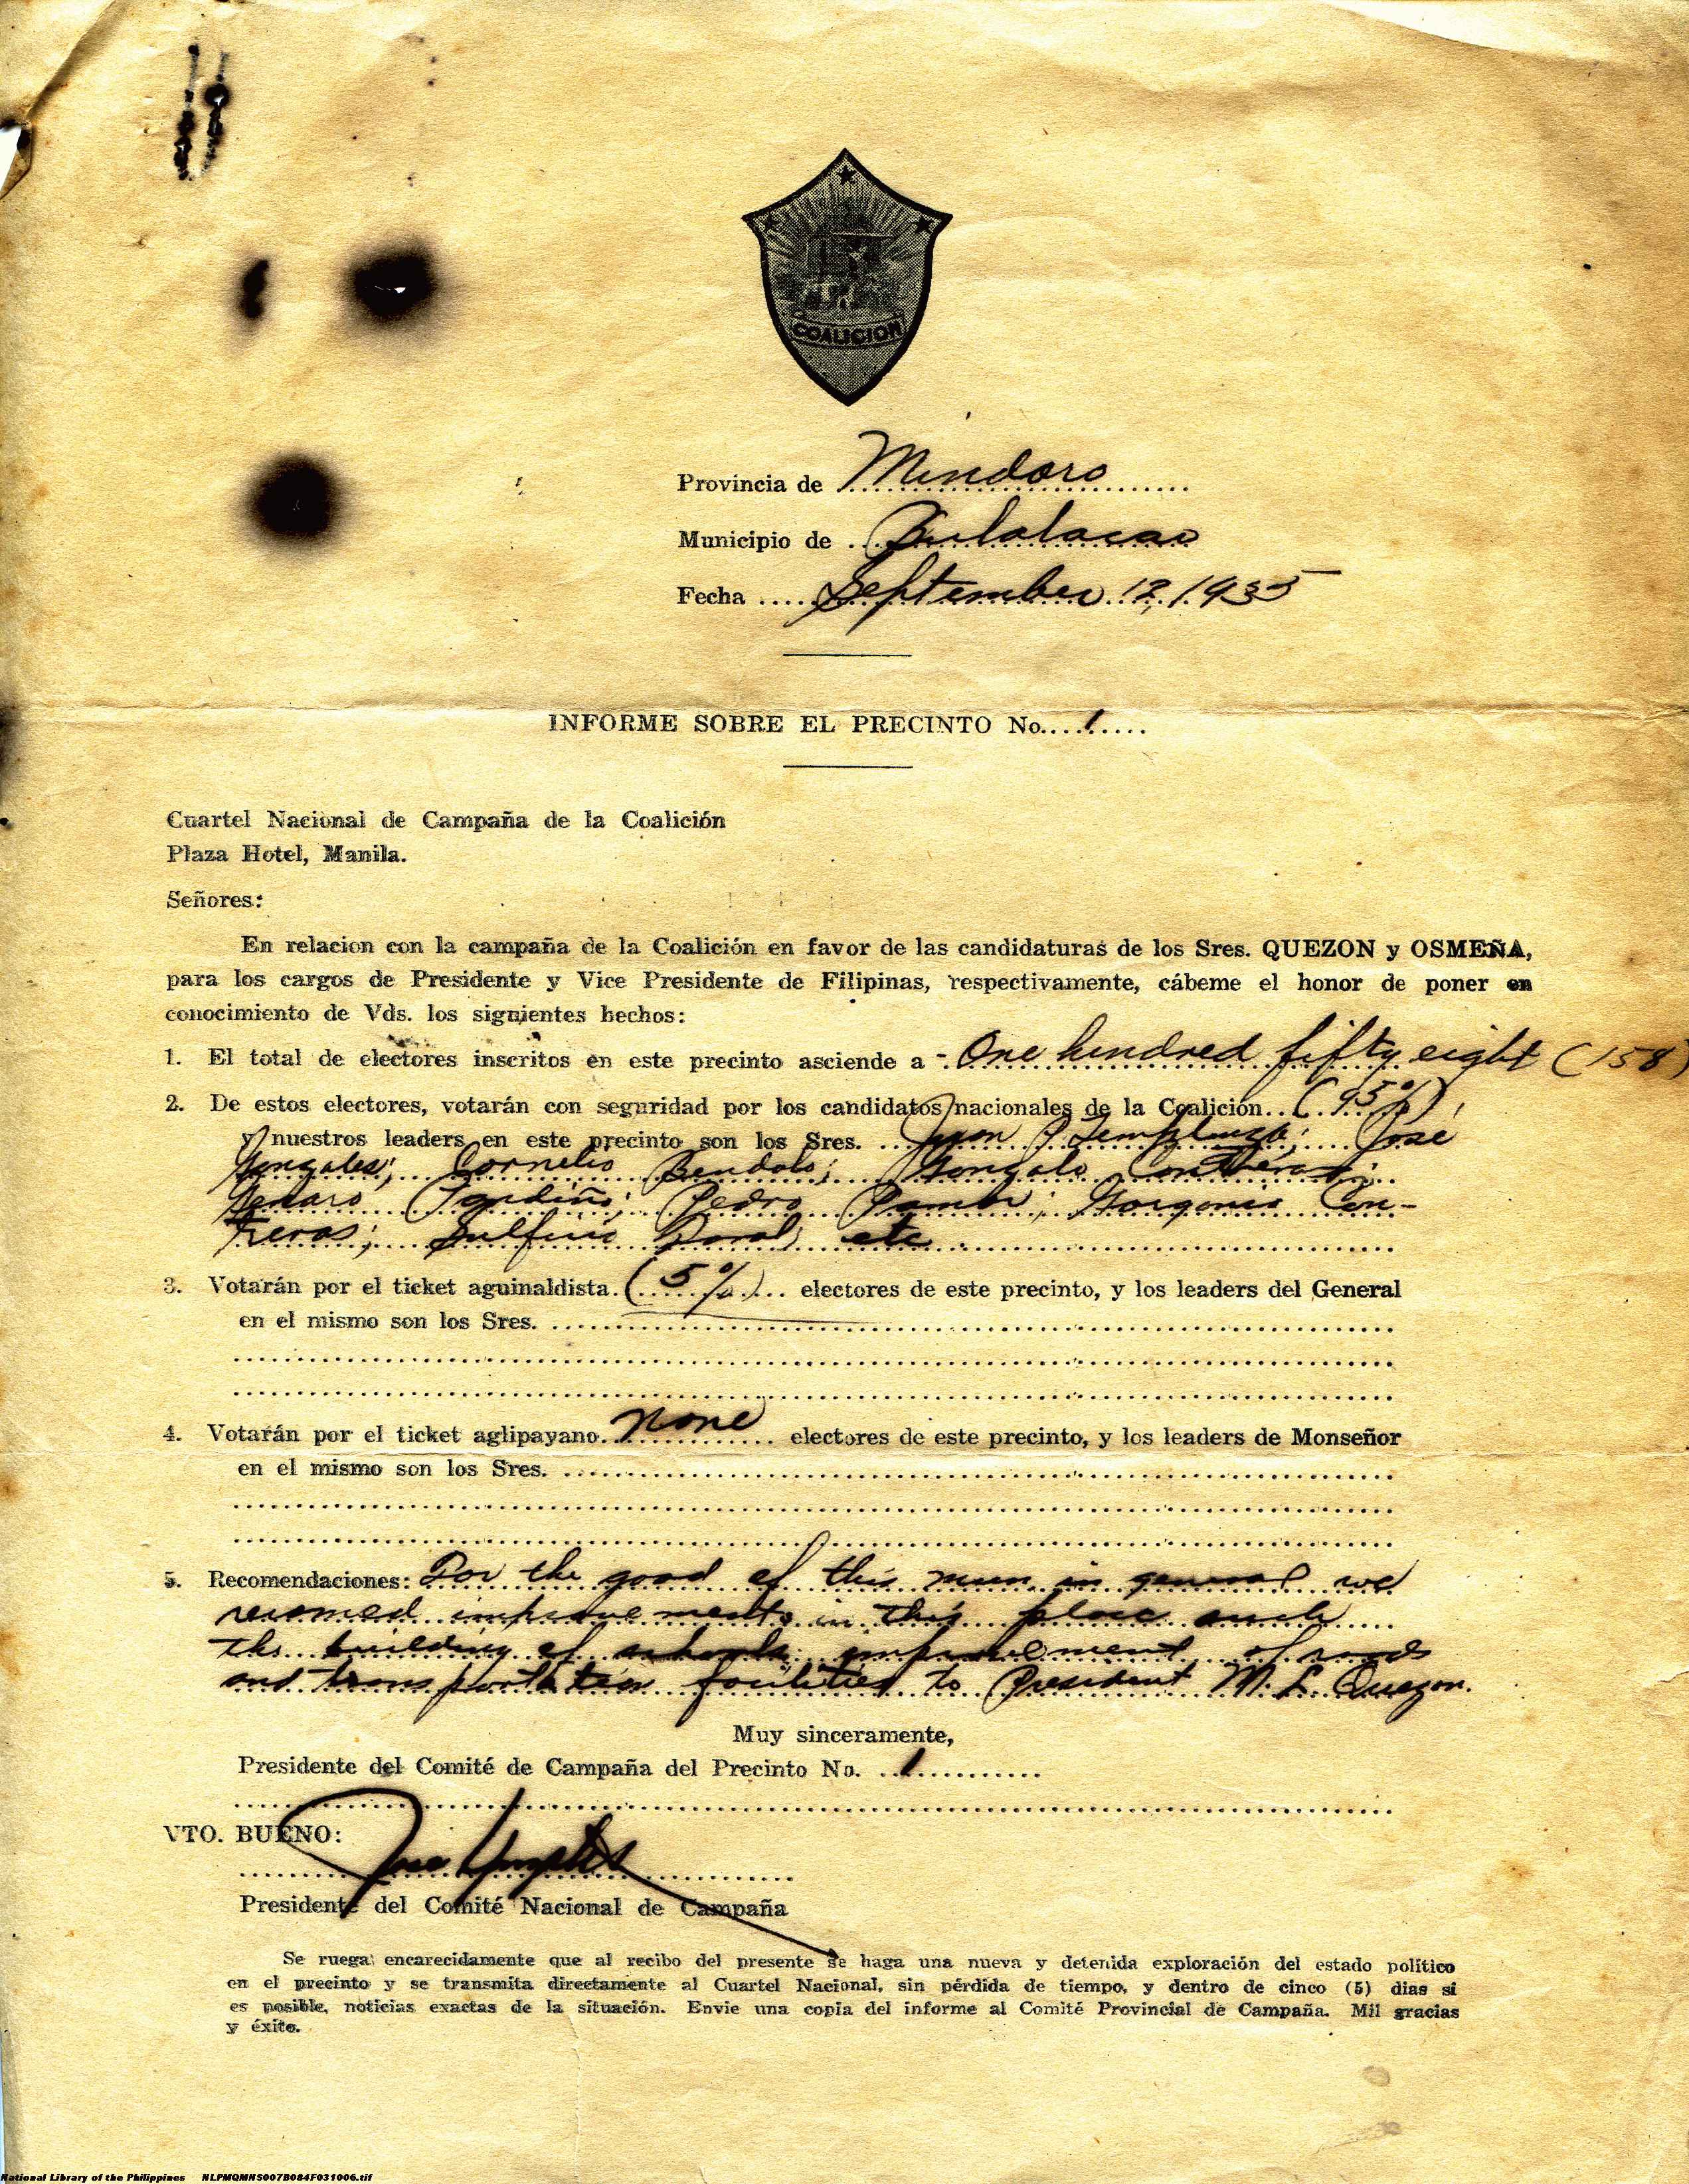 COALICION
Provincia de Mindoro
Municipio de Bulalacao
Fecha September 12, 1935
INFORME SOBRE EL PRECINTO No. 1
Cuartel Nacional de Campaña de la Coalición
Plaza Hotel, Manila.
Señores:
En relacion con la campaña de la Coalición en favor de las candidaturas de los Sres. QUEZON y OSMEÑA,
para los cargos de Presidente y Vice Presidente de Filipinas, respectivamente, cábeme el honor de poner en
conocimiento de Vds. los siguientes hechos:
1. El total de electores inscritos en este precinto asciende a - One hundred fifty eight (158)
2. De estos electores, votarán con seguridad por los candidatos nacionales de la Coalición (95%),
y nuestros leaders en este precinto son los Sres. Juan; José
Gonzales; Cornelio; Gonzalo Contreras;
Genaro; Pedro; Gorgonio Con-
treras; etc
3. Votarán por el ticket aguinaldista (5%) electores de este precinto, y los leaders del General
en el mismo son los Sres.
4. Votarán por el ticket aglipayano none electores de este precinto, y los leaders de Monseñor
en el mismo son los Sres.
5. Recomendaciones: For the good of this mun. in general we
improvements in this place such
the building of schools improvement of roads
and transportation facilities to President M. L. Quezon.
Muy sinceramente,
Presidente del Comité de Campaña del Precinto No. 1
VTO. BUENO:
Presidente del Comité Nacional de Campaña
Se ruega encarecidamente que al recibo del presente se haga una nueva y detenida exploración del estado político
en el precinto y se transmita directamente al Cuartel Nacional, sin pérdida de tiempo, y dentro de cinco (5) dias si
es posible, noticias exactas de la situación. Envie una copia del informe al Comité Provincial de Campaña. Mil gracias
y éxito.
National Library of the Philippines NLPMQMNS007B084F031006.tif